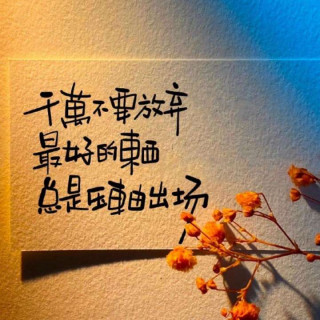 千萬不要放弃
最好的東西
总是压軸出场